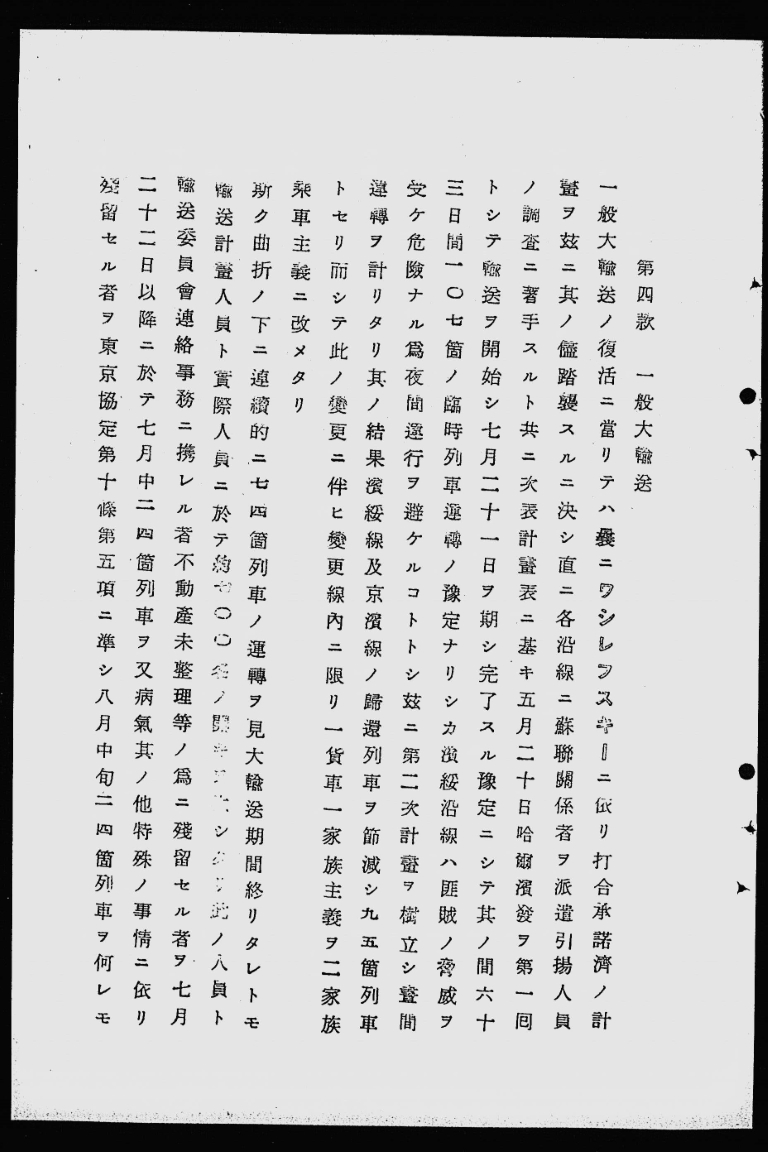 第四款　一般大輸送
一般大輸送ノ復活ニ當リテハ曩ニワシレフスキーニ依リ打合承諾濟ノ計
畫ヲ玆ニ其ノ儘踏襲スルニ決シ直ニ各沿線ニ蘇聯關係者ヲ派遣引揚人員
ノ調査ニ著手スルト共ニ次表計畫表ニ基キ五月二十日哈爾濱發ヲ第一囘
トシテ輸送ヲ開始シ七月二十一日ヲ期シ完了スル豫定ニシテ其ノ間六十
三日間一〇七箇ノ臨時列車運轉ノ豫定ナリシカ濱綏沿線ハ匪賊ノ脅威ヲ
受ケ危險ナル爲夜間運行ヲ避ケルコトトシ玆ニ第二次計畫ヲ樹立シ晝間
運轉ヲ計リタリ其ノ結果濱綏線及京濱線ノ歸還列車ヲ節減シ九五箇列車
トセリ而シテ此ノ變更ニ伴ヒ變更線內ニ限リ一貨車一家族主義ヲ二家族
乘車主義ニ改メタリ
斯ク曲折ノ下ニ連續的ニ七四箇列車ノ運轉ヲ見大輸送期間終リタレトモ
輸送計畫人員ト實際人員ニ於テ約七〇〇名ノ開キ シタリ此ノ人員ト
輸送委員會連絡事務ニ携レル者不動產未整理等ノ爲ニ殘留セル者ヲ七月
二十二日以降ニ於テ七月中二四箇列車ヲ又病氣其ノ他特殊ノ事情ニ依リ
殘留セル者ヲ東京協定第十條第五項ニ準シ八月中旬二四箇列車ヲ何レモ